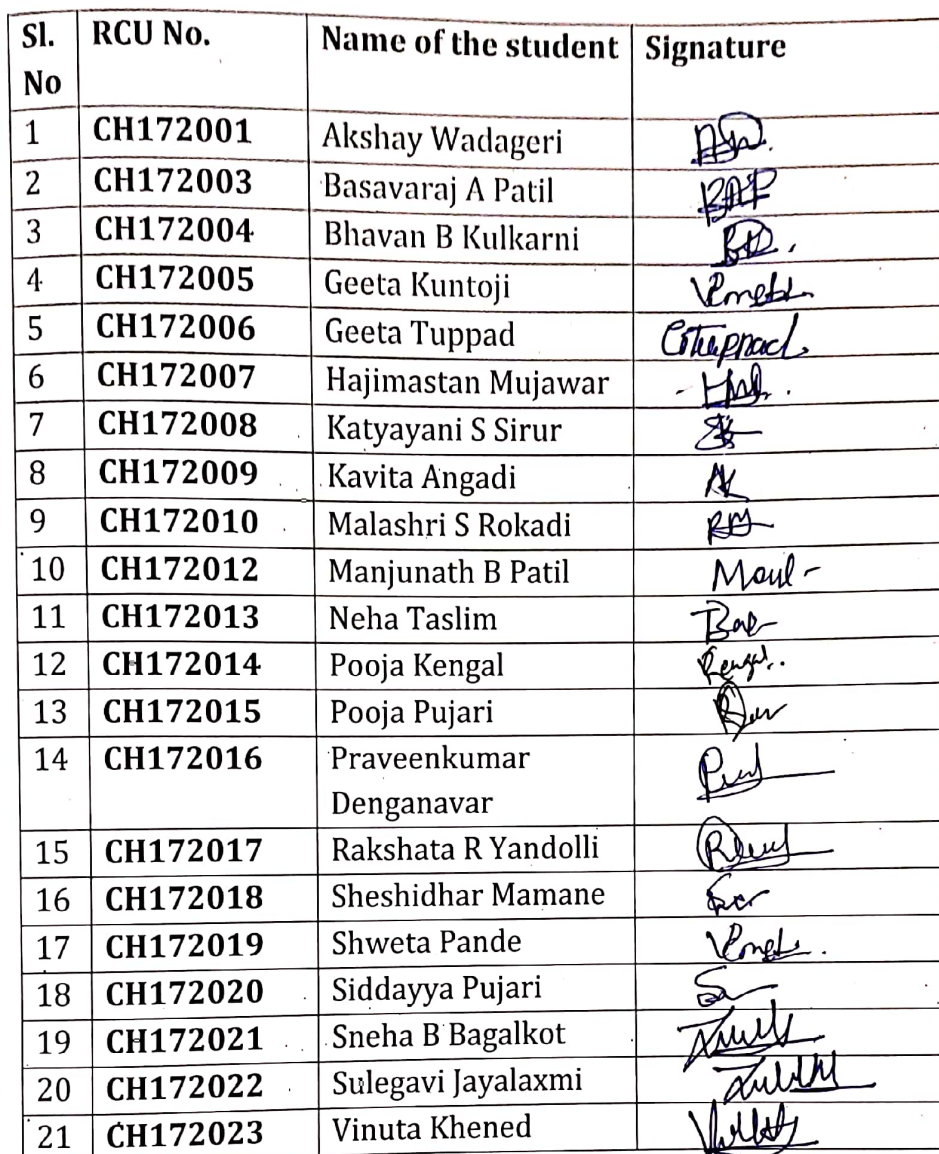 Sl. No RCU No. Name of the student Signature
1 CH172001 Akshay Wadageri
2 CH172003 Basavaraj A Patil BAP
3 CH172004 Bhavan B Kulkarni
4 CH172005 Geeta Kuntoji
5 CH172006 Geeta Tuppad
6 CH172007 Hajimastan Mujawar
7 CH172008 Katyayani S Sirur
8 CH172009 Kavita Angadi
9 CH172010 Malashri S Rokadi
10 CH172012 Manjunath B Patil
11 CH172013 Neha Taslim
12 CH172014 Pooja Kengal Kengal.
13 CH172015 Pooja Pujari
14 CH172016 Praveenkumar
Denganavar
15 CH172017 Rakshata R Yandolli
16 CH172018 Sheshidhar Mamane
17 CH172019 Shweta Pande
18 CH172020 Siddayya Pujari
19 CH172021 Sneha B Bagalkot
20 CH172022 Sulegavi Jayalaxmi
21 CH172023 Vinuta Khened